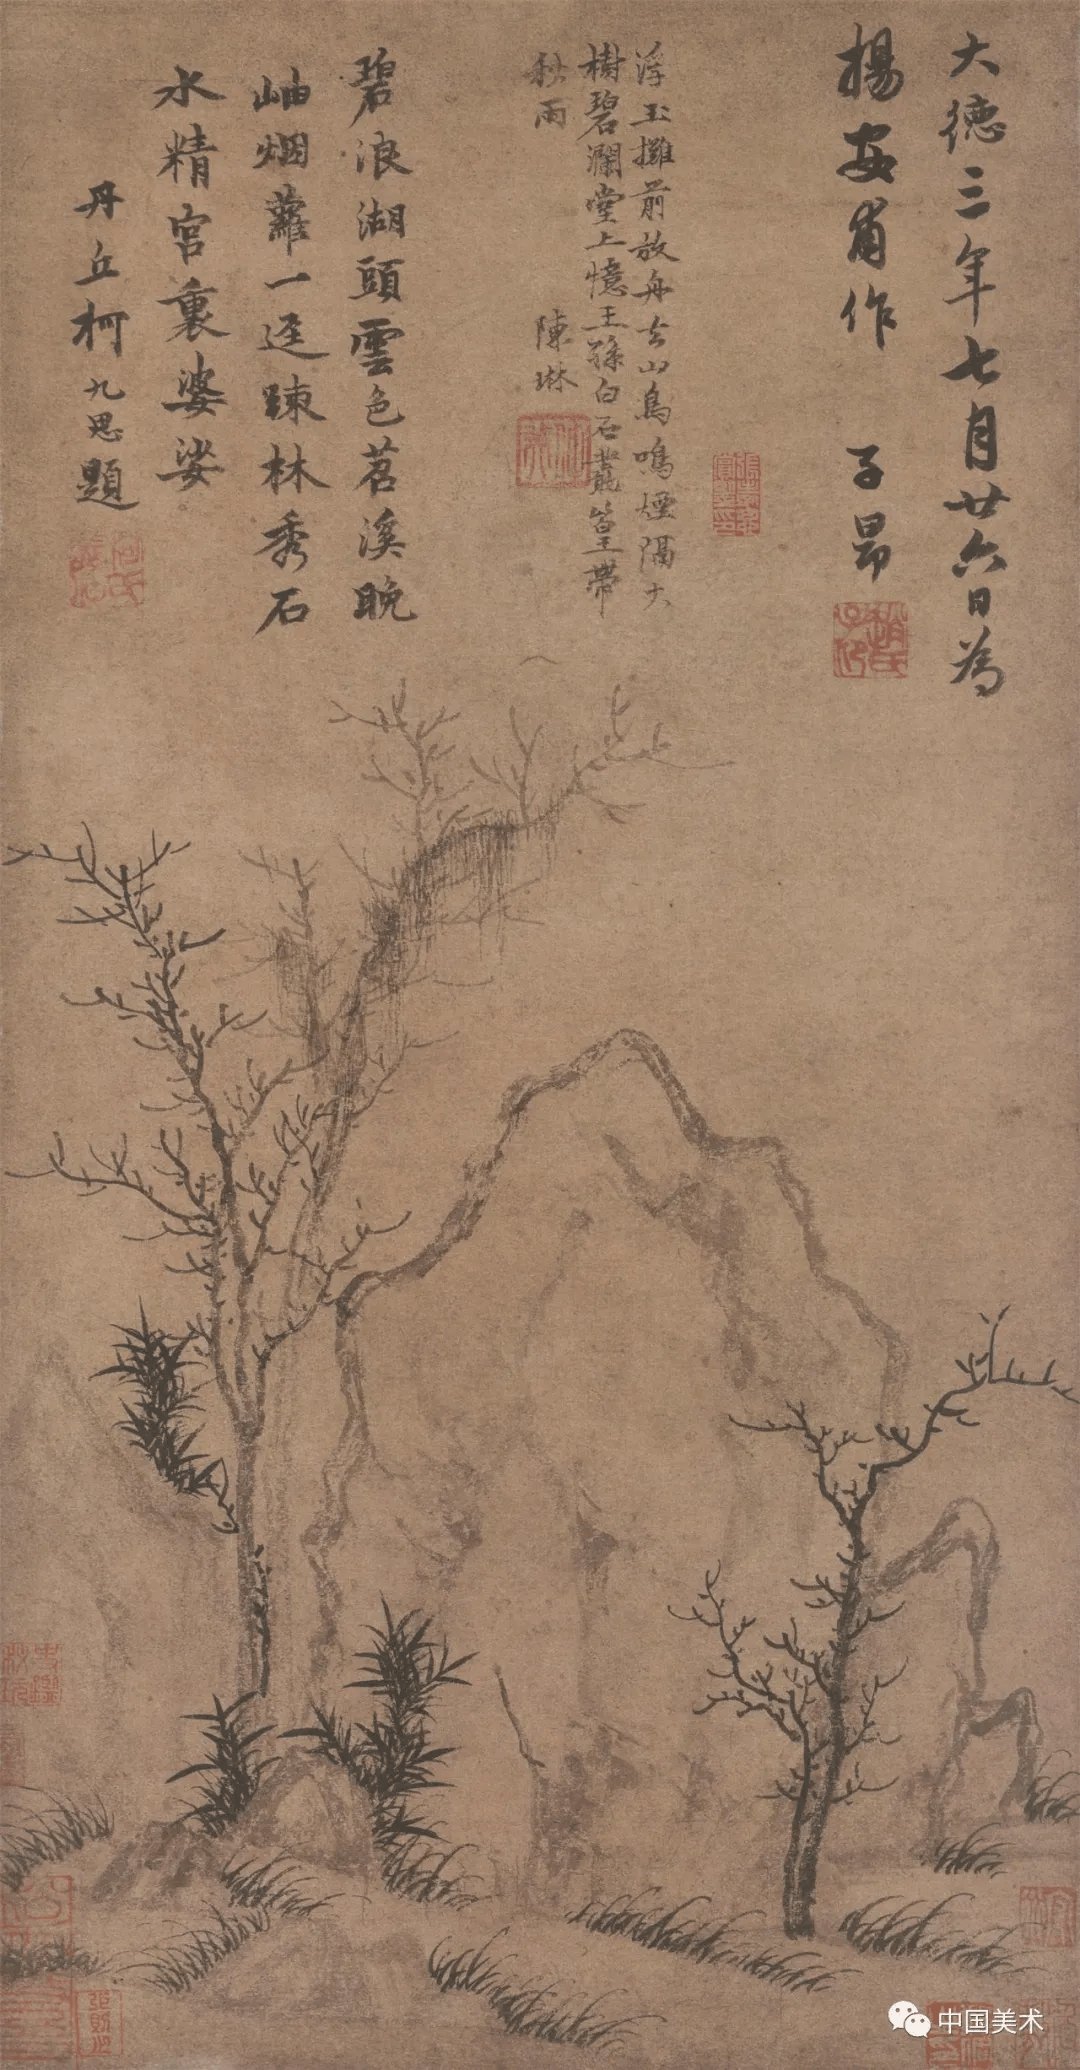 大德三年七月廿六日為
揚安甫作 子昂
趙氏子昂
浮玉攤前放舟去山鳥鳴煙隔大
樹碧瀾堂上憶王孫白石叢篁帶
秋雨 陳琳
碧浪湖頭雲色苕溪晚
岫烟蘿一逕踈林秀石
水精宫裏婆娑
丹丘柯九思題
中国美术